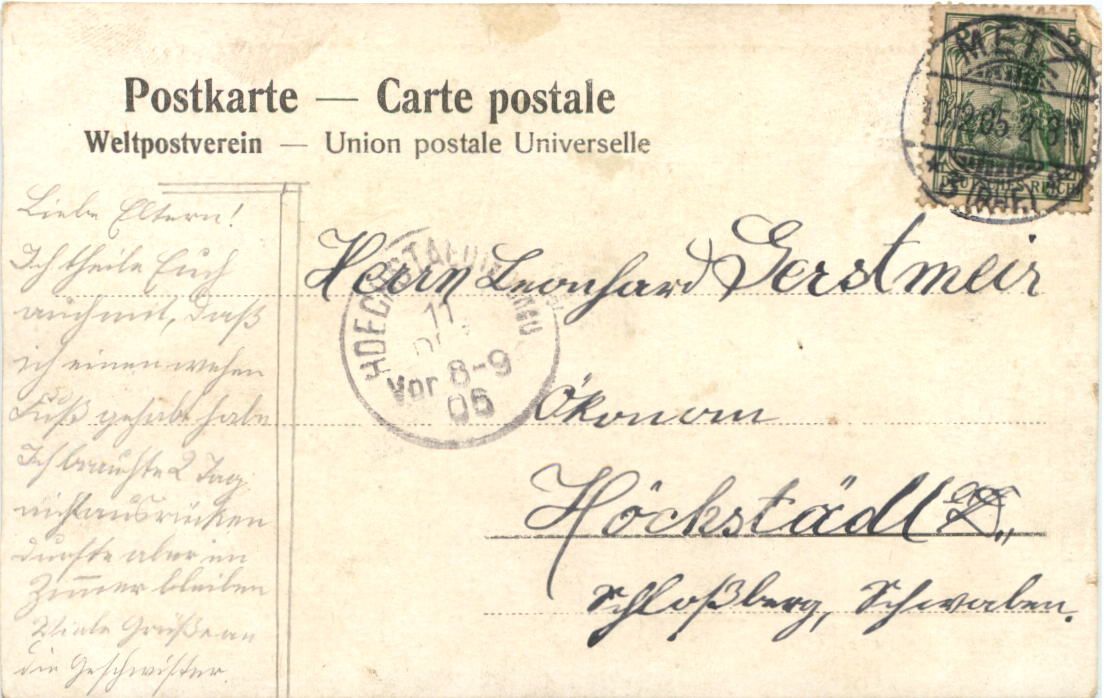 Postkarte — Carte postale
Weltpostverein — Union postale Universelle
5
METZ
05
DEUTSCHES REICH
Liebe Eltern!
Ich theile Euch
auch mit, daß
ich einen wehen
Fuß gehabt habe
Ich brauchte 2 Tag
nicht ausrücken
durfte aber im
Zimmer bleiben
Viele Grüße an
die Geschwister.
HOECHSTAEDT
11
Vor 8-9
05
Herrn Leonhard Gerstmeir
Ökonom
Höchstädt a/D.,
Schloßberg, Schwaben.